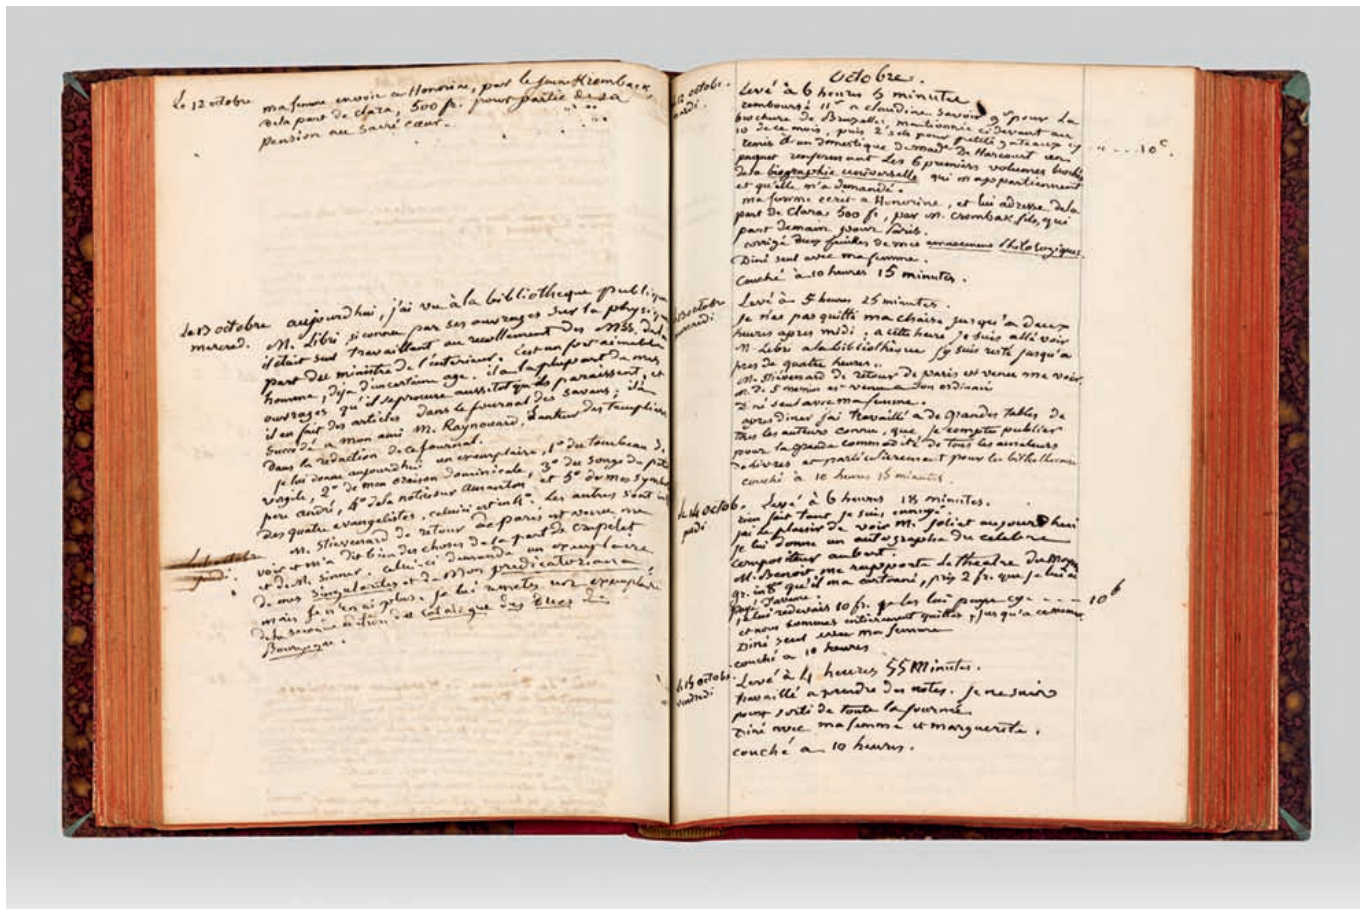 Le 12 octobre
ma femme envoie a Honorine, par le jeune Krombach,
de la part de Clara, 500 fr. pour partie de sa
pension au Sacré cœur.
Le 13 octobre
mercred.
aujourdhui, j'ai vu à la bibliotheque publique
M. Libri, si connu par ses ouvrages sur la physique
il était seul travaillant au recollement des Mss. de la
part du ministre de l'interieur. C'est un fort aimable
homme, deja d'un certain age. il a la plupart de mes
ouvrages qu'il se procure aussitot qu'ils paraissent, et
il en fait des articles dans le journal des savans; il a
succédé a mon ami M. Raynouard, auteur des templiers
dans la rédaction de ce journal.
je lui donne aujourdhui un exemplaire, 1° du tombeau de
virgile, 2° de mon oraison dominicale, 3° du songe du petit
pere andré, 4° de la notice sur Amanton et 5° de mes symboles
des quatre evangelistes, celui ci est in 4°. Les autres sont in
jeudi.
M. Stievenard de retour de paris est venu me
voir et m'a dit bien des choses de la part de Crapelet
et de M. Sinner. celui-ci demande un exemplaire
de mes singularités et de mon predicatoriana,
mais je n'en ai plus. je lui remets un exemplaire
de la seconde edition du catalogue des Ducs de
Bourgogne.
octobre.
12 octobre.
Levé à 6 heures 5 minutes
remboursé 11 s a claudine savoir 9 s pour la
brochure de Bruxelles, mentionnée ci devant au
10 de ce mois, puis 2 sols pour petits gateaux cy
" ... 10 c.
remis a un domestique de made De Harcourt un
paquet renfermant les 6 premiers volumes brochés
de la biographie universelle qui m'appartiennent
et qu'elle m'a demandé.
ma femme ecrit a Honorine, et lui adresse de la
part de Clara 500 fr, par M. Crombak, fils, qui
part demain pour Paris.
corrigé deux feuilles de mes amusemens philologiques.
Diné seul avec ma femme.
couché à 10 heures 15 minutes.
13 octobre
mercredi
Levé à 5 heures 25 minutes.
Je n'ai pas quitté ma chaise jusqu'à deux
heures apres midi. a cette heure je suis allé voir
M. Libri a la bibliothèque j'y suis resté jusqu'a
pres de quatre heures..
M. Stiévenard de retour de paris est venu me voir
est venu a son ordinaire
Diné seul avec ma femme.
apres diner j'ai travaillé a de grandes tables de
tous les auteurs connus, que je compte publier
pour la grande commodité de tous les amateurs
de livres et particulierement pour les bibliothecaires
couché à 10 heures 15 minutes.
Le 14 octob.
jeudi.
Levé à 6 heures 18 minutes.
rien fait tant je suis ennuyé.
j'ai le plaisir de voir M. Joliet aujourdhui
je lui donne un autographe du célebre
compositeur aubert.
M. Benoit me rapporte le theatre du Moyen
gr. in 8° qu'il m'a cartonné, prix 2 fr. que je lui ai
payé d'avance.
je lui redevais 10 fr. je les lui paye cy - - - 10 b
et nous sommes entierement quittes, jusqu'a ce
Diné seul avec ma femme
couché a 10 heures
Le 15 octobr.
vendredi
Levé à 4 heures 55 Minutes.
travaillé a prendre des notes. je ne suis
point sorti de toute la journée.
Diné avec ma femme et marguerite.
couché a 10 heures.